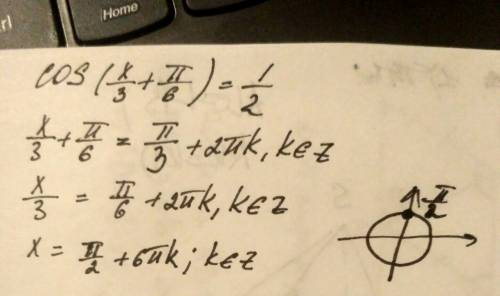 Home
cos(x/3 + π/6) = 1/2
x/3 + π/6 = π/3 + 2πk, k∈z
x/3 = π/6 + 2πk, k∈z
x = π/2 + 6πk; k∈z
π/2